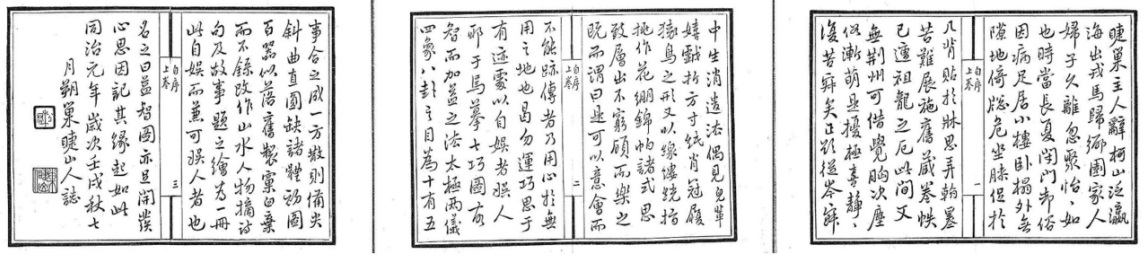 睫巢主人辭柯山泛瀛
海出戎馬歸鄉園家人
婦子久離忽聚怡〻如
也時當長夏閉門却俗
因病足居小樓臥榻外無
隙地倚牕危坐膝促於
自序
上卷
一
几背貼於牀思弄翰墨
苦難展施舊藏卷帙
已遭祖龍之厄此間又
無荊州可借覺胸次塵
俗漸萌且擾極喜靜〻
復苦寂矣正欲從岑寂
中生消遣法偶見兒輩
嬉戲折方寸紙肖冠履
猿鳥之形又以線縷繞指
挑作花綳錦帕諸式思
致層出不窮顧而樂之
既而謂曰是可以意會而
自序
上卷
二
不能跡傳者乃用心於無
用之地也曷勿運巧思于
有迹處以自娛者娛人
耶于焉摹七巧圖
智而加益之法太極兩儀
四象八卦之目為十有五
事合之成一方散則備尖
斜曲直圓缺諸體動圖
百器似落舊製窠臼棄
而不錄改作山水人物摘詩
句及故事題之繪為一冊
此自娛而兼可娛人者也
自序
上卷
三
名之曰益智圖亦足開發
心思因記其緣起如此
同治元年歲次壬戌秋七
月朔巢睫山人誌